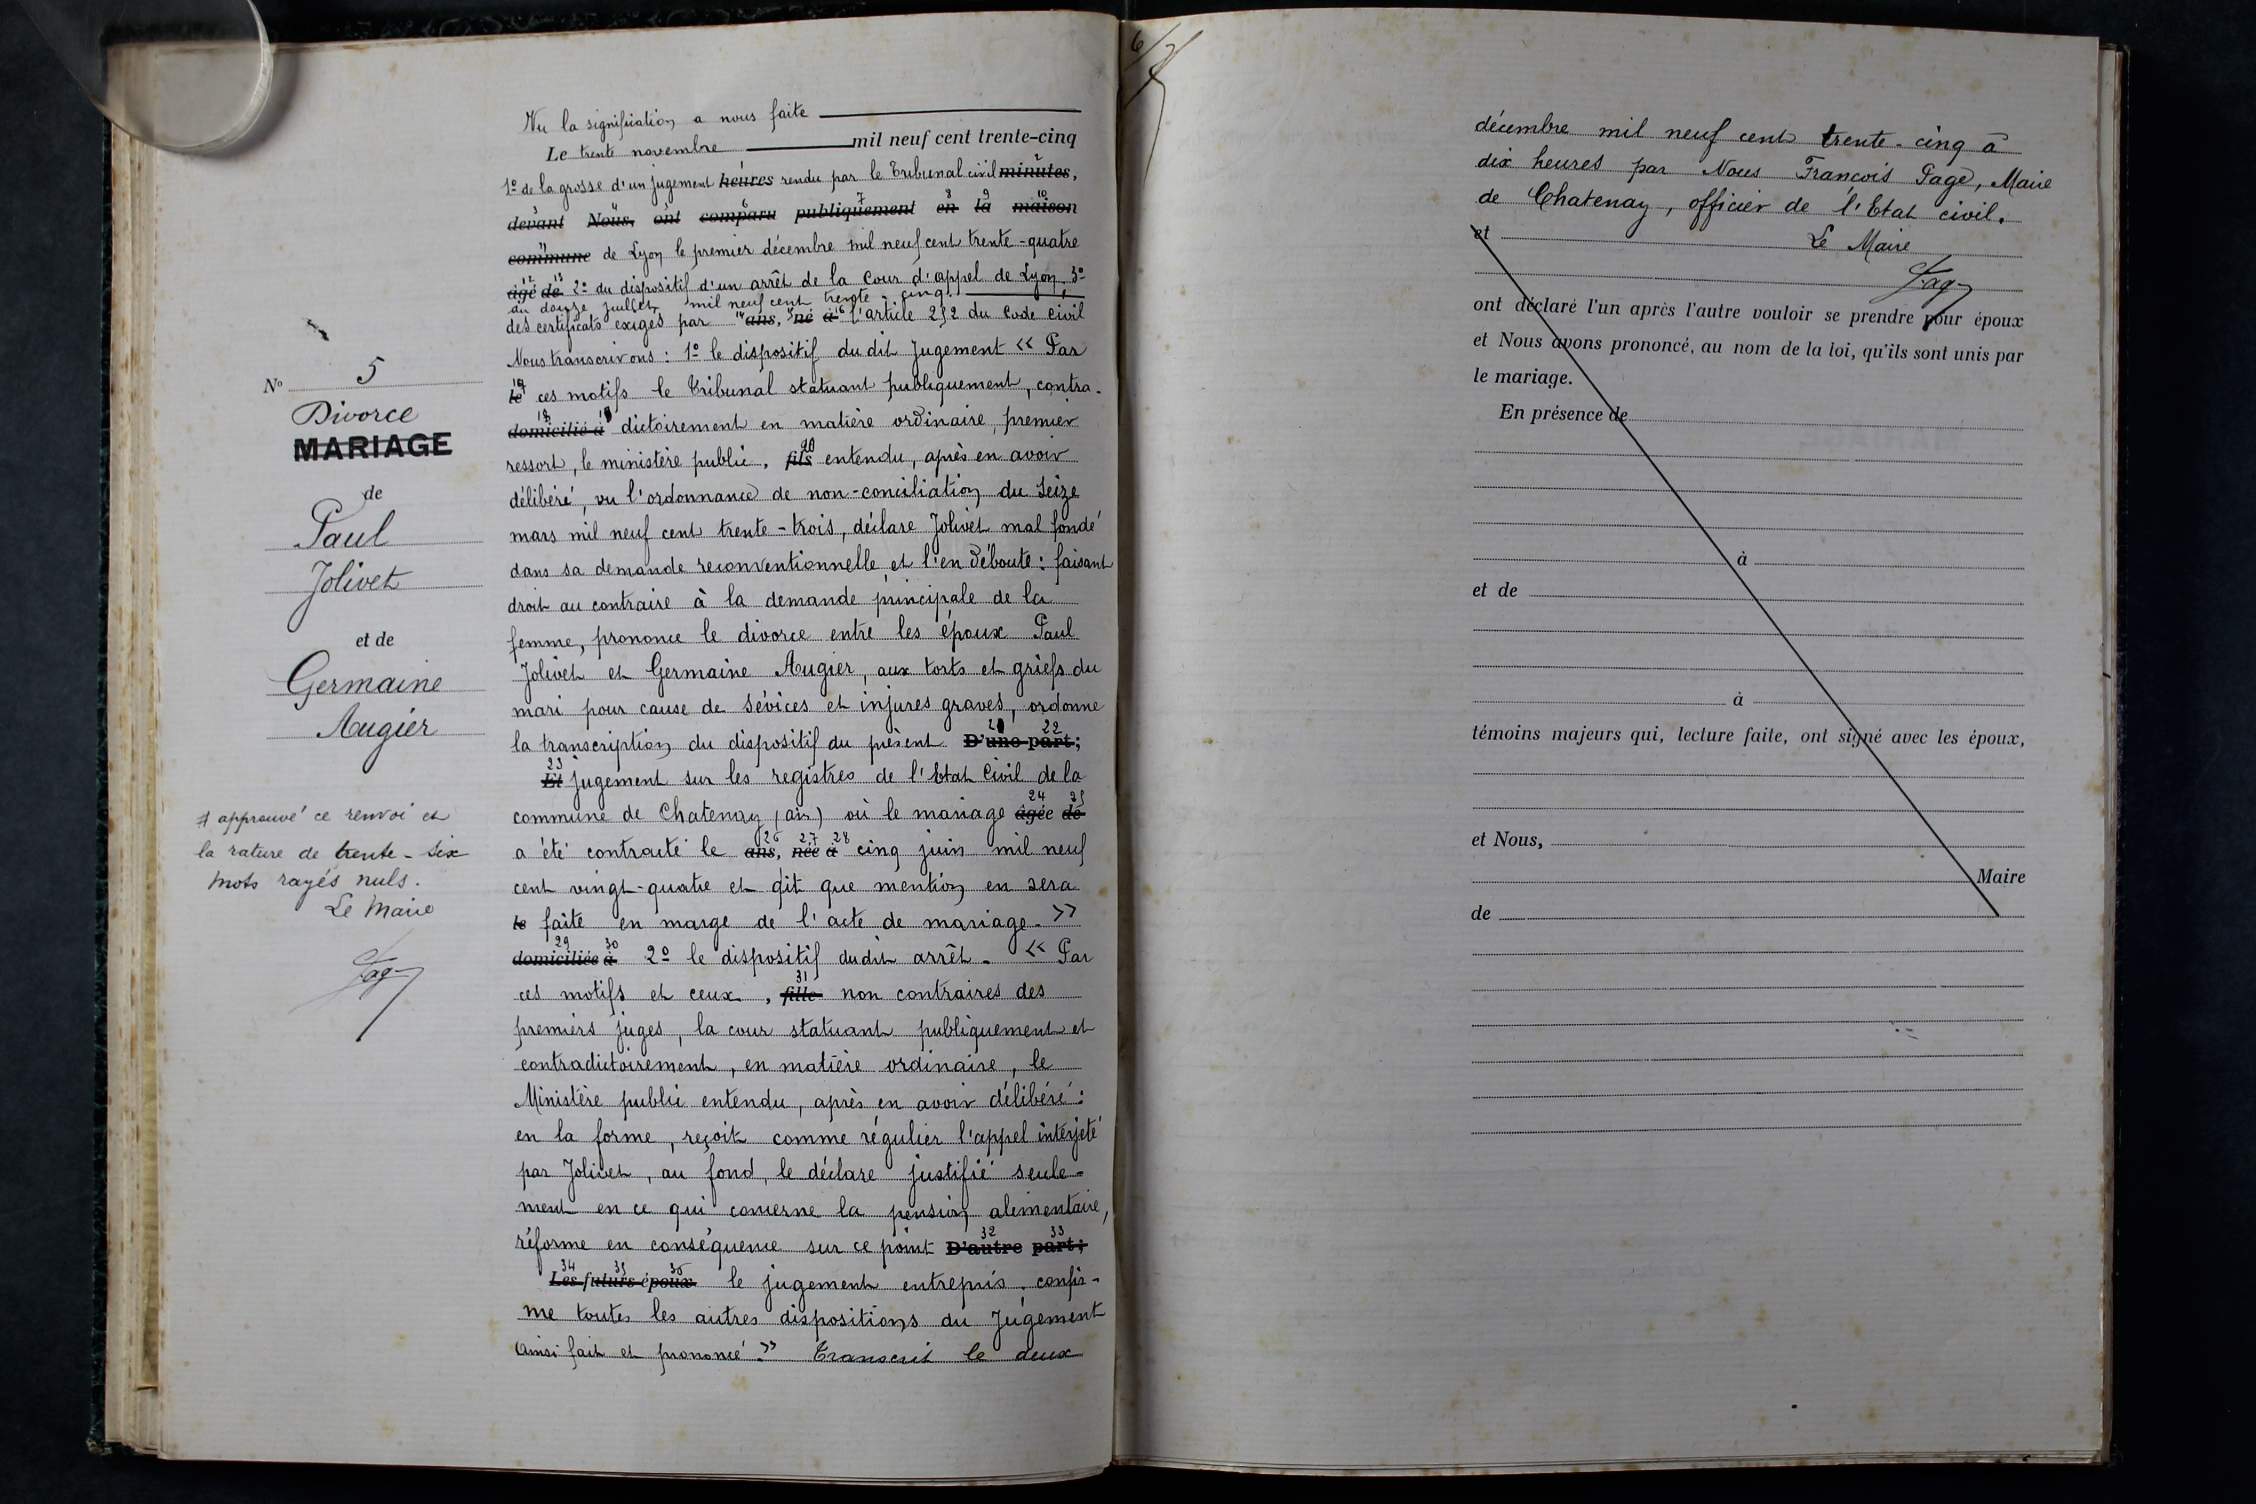 Vu la signification a nous faite
Le trente novembre mil neuf cent trente-cinq
1º de la grosse d'un jugement heures rendu par le Tribunal civil minutes,
devant Nous, ont comparu publiquement en la maison
commune de Lyon le premier décembre mil neuf cent trente-quatre
âgé de 2º du dispositif d'un arrêt de la Cour d'appel de Lyon, 3º
du douze juillet mil neuf cent trente-cinq.
des certificats exigés par ans, né à l'article 252 du Code civil
Nous transcrivons : 1º le dispositif dudit Jugement « Par
le ces motifs le Tribunal statuant publiquement, contra-
domicilié à dictoirement en matière ordinaire, premier
ressort, le ministère public, fils entendu, après en avoir
délibéré, vu l'ordonnance de non-conciliation du seize
mars mil neuf cent trente-trois, déclare Jolivet mal fondé
dans sa demande reconventionnelle et l'en déboute : faisant
droit au contraire à la demande principale de la
femme, prononce le divorce entre les époux Paul
Jolivet et Germaine Augier, aux torts et griefs du
mari pour cause de sévices et injures graves, ordonne
la transcription du dispositif du présent D'une part;
Et jugement sur les registres de l'Etat Civil de la
commune de Chatenay (ain) où le mariage âgée de
a été contracté le ans, née à cinq juin mil neuf
cent vingt-quatre et dit que mention en sera
le faite en marge de l'acte de mariage. »
domiciliée à 2º le dispositif dudit arrêt - « Par
ces motifs et ceux, fille non contraires des
premiers juges, la cour statuant publiquement et
contradictoirement, en matière ordinaire, le
Ministère public entendu, après en avoir délibéré :
en la forme, reçoit comme régulier l'appel interjeté
par Jolivet, au fond, le déclare justifié seule-
ment en ce qui concerne la pension alimentaire,
réforme en conséquence sur ce point D'autre part;
Les futurs époux le jugement entrepris, confir-
me toutes les autres dispositions du Jugement
ainsi fait et prononcé. » Transcrit le deux
Nº 5
Divorce
MARIAGE
de
Paul
Jolivet
et de
Germaine
Augier
# approuvé ce renvoi et
la rature de trente-six
mots rayés nuls.
Le Maire
décembre mil neuf cent trente-cinq à
dix heures par Nous François Page, Maire
de Chatenay, officier de l'Etat civil.
et
Le Maire
ont déclaré l'un après l'autre vouloir se prendre pour époux
et Nous avons prononcé, au nom de la loi, qu'ils sont unis par
le mariage.
En présence de
à
et de
à
témoins majeurs qui, lecture faite, ont signé avec les époux,
et Nous,
Maire
de